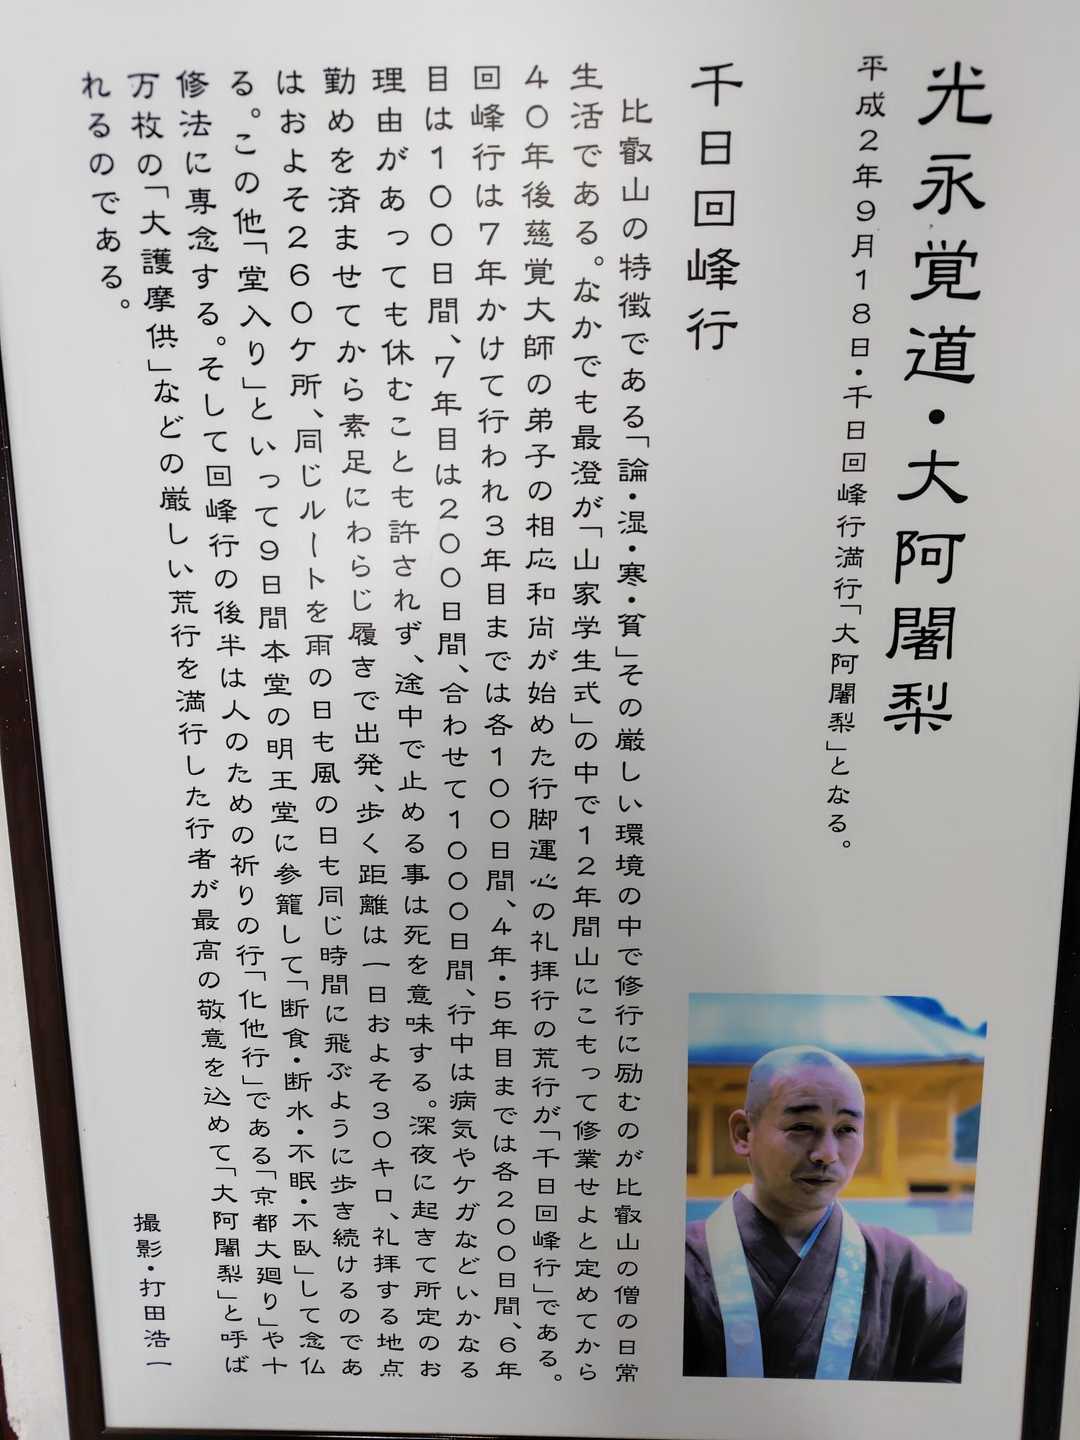 光永覚道・大阿闍梨
平成2年9月18日・千日回峰行満行「大阿闍梨」となる。
千日回峰行
比叡山の特徴である「論・湿・寒・貧」その厳しい環境の中で修行に励むのが比叡山の僧の日常
生活である。なかでも最澄が「山家学生式」の中で12年間山にこもって修業せよと定めてから
40年後慈覚大師の弟子の相応和尚が始めた行脚運心の礼拝行の荒行が「千日回峰行」である。
回峰行は7年かけて行われ3年目までは各100日間、4年・5年目までは各200日間、6年
目は100日間、7年目は200日間、合わせて1000日間、行中は病気やケガなどいかなる
理由があっても休むことも許されず、途中で止める事は死を意味する。深夜に起きて所定のお
勤めを済ませてから素足にわらじ履きで出発、歩く距離は一日およそ30キロ、礼拝する地点
はおよそ260ケ所、同じルートを雨の日も風の日も同じ時間に飛ぶように歩き続けるのであ
る。この他「堂入り」といって9日間本堂の明王堂に参籠して「断食・断水・不眠・不臥」して念仏
修法に専念する。そして回峰行の後半は人のための祈りの行「化他行」である「京都大廻り」や十
万枚の「大護摩供」などの厳しい荒行を満行した行者が最高の敬意を込めて「大阿闍梨」と呼ば
れるのである。
撮影・打田浩一